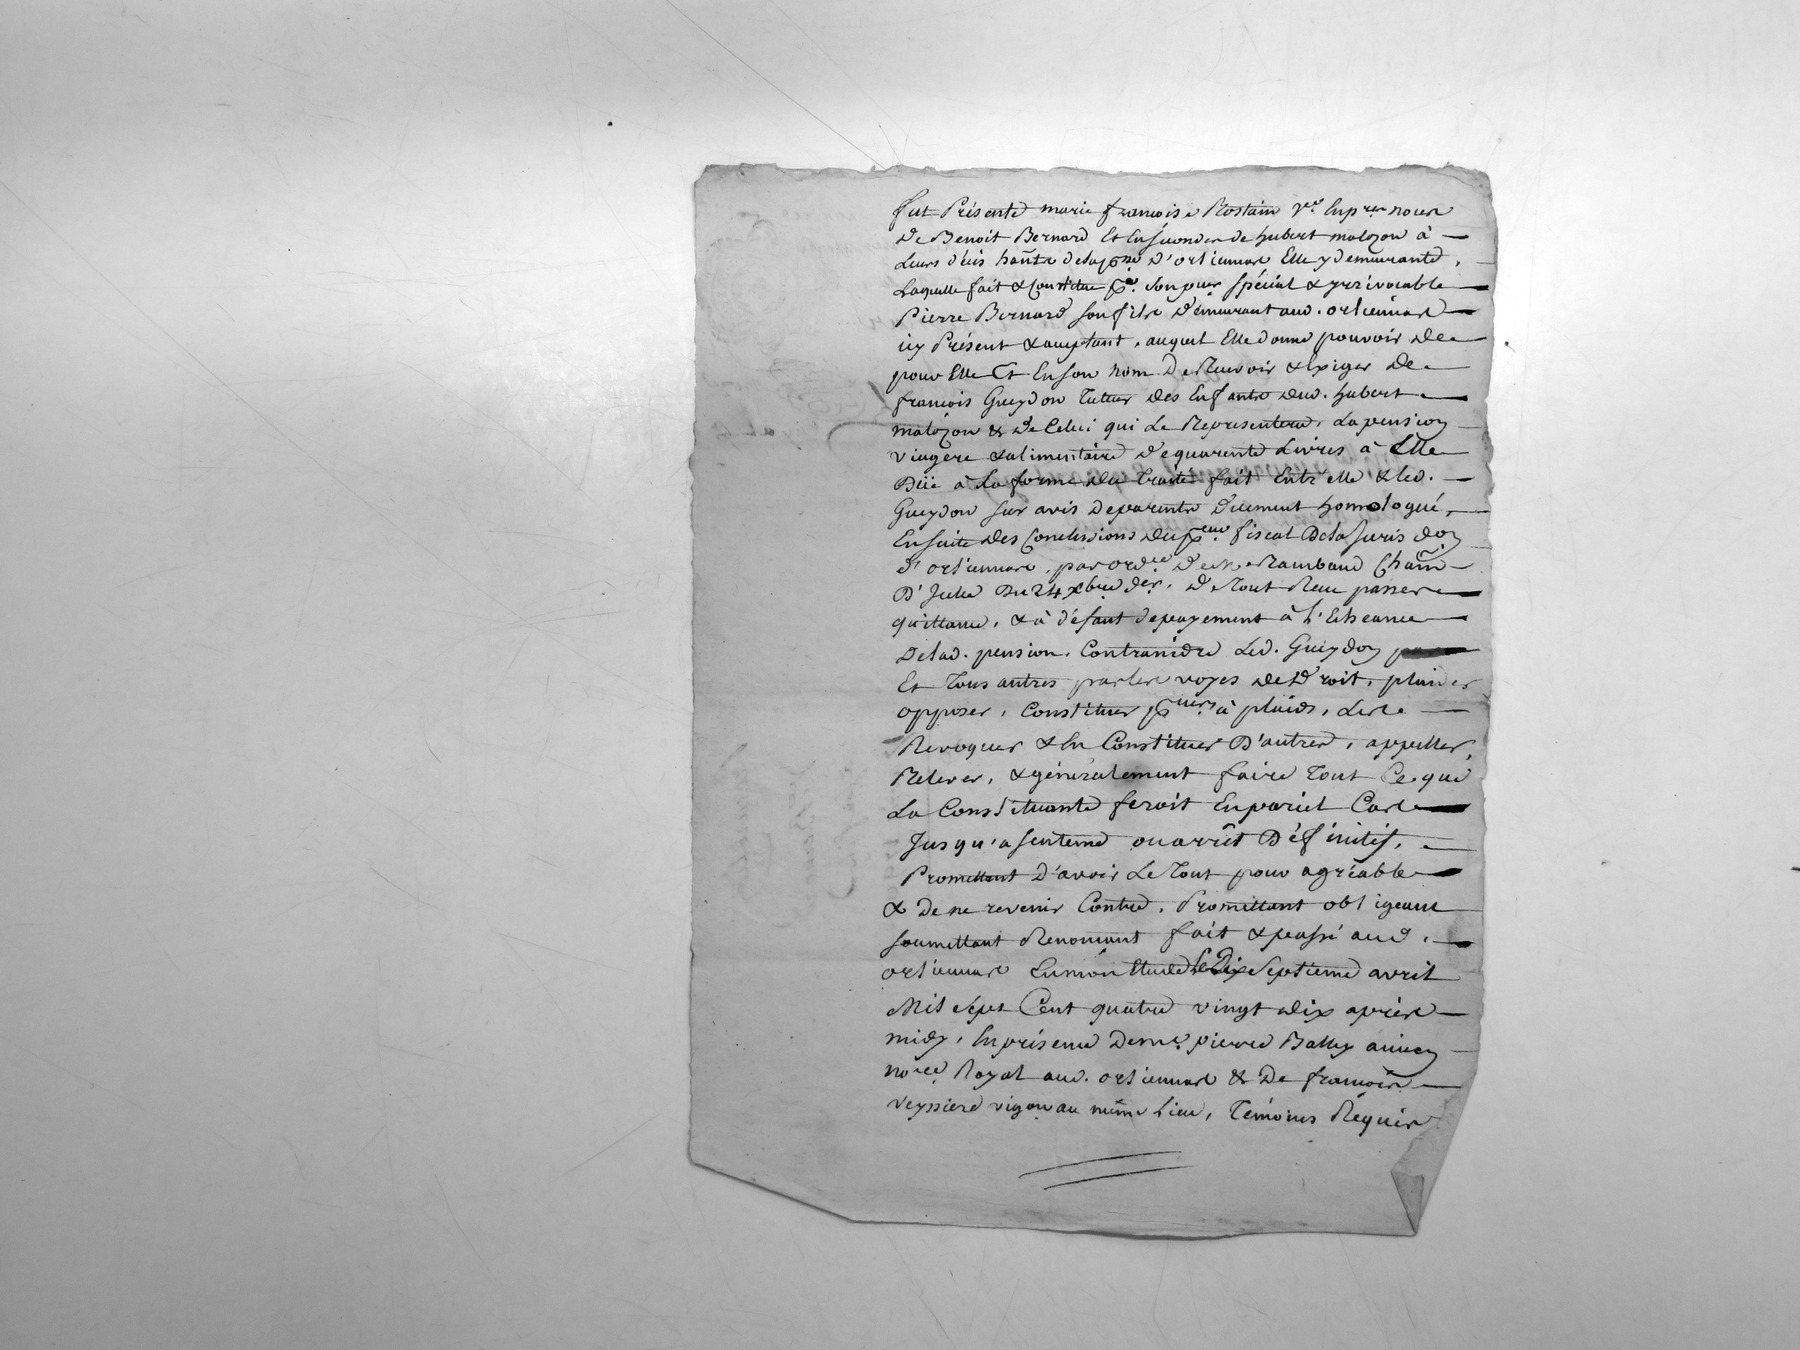 fut Présente marie francoise Rostain v.e En p.res noces
De Benoit Bernard Et En secondes de hubert malozon à
Leurs décés hañte de la p.sse d'orcieunas Elle y demeurante,
Laquelle fait & Constitue p.r son p.eur spécial & yrrévocable
Pierre Bernard son fils demeurant aud. orcieunas
icy Présent & acceptant, auquel Elle donne pouvoir de
pour Elle Et En son nom De Recevoir & Exiger de
francois Gueydon Tuteur des Enfants dud. hubert
malozon & de Celui qui Le Representera, La pension
viagere & alimentaire de quarente Livres à Elle
Düe à La forme du traité fait Entr'elle & led.
Gueydon sur avis de parents duement homologué,
En suite des Conclusions du p.eur fiscal De la Jurisdon
d'orcieunas, par ord.ce de M.e Rambaud Cham
D'Julie Du 24 Xbre der. de Tout Reçu passer
quittance, & à défaut de payement à L'Echeance
De lad. pension, Contraindre Led. Gueydon
Et Tous autres par les voyes de Droit, plaider
opposer, Constituer p.eurs à plaids, Les
Revoquer & En Constituer D'autres, appeller,
Relever, & généralement faire Tout Ce que
La Constituante feroit En pareil Cas
Jusqu'a sentence ou arrêt Définitif,
Promettant D'avoir Le Tout pour agréable
& De ne revenir Contre, Promettant obligeant
soumettant Renonçant fait & passé aud.
orcieunas En mon Etude Le Dix Septieme avril
Mil Sept Cent quatre vingt dix après
midy, En présence De m.e pierre Bally ancien
no.re Royal aud. orcieunas & De francois
veyssiere vigon au même Lieu, Témoins Réquis